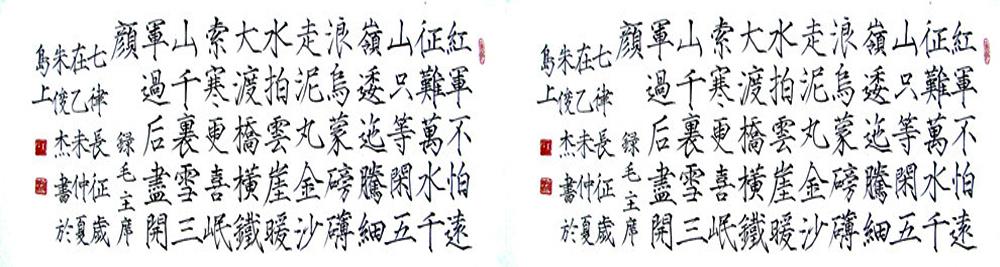 紅軍不怕遠
征難萬水千
山只等閑五
嶺逶迤騰細
浪烏蒙磅礴
走泥丸金沙
水拍雲崖暖
大渡橋橫鐵
索寒更喜岷
山千裏雪三
軍過后盡開
顏
録毛主席
七律長征歲
在乙未仲夏
朱俊杰書於
島上
紅軍不怕遠
征難萬水千
山只等閑五
嶺逶迤騰細
浪烏蒙磅礴
走泥丸金沙
水拍雲崖暖
大渡橋橫鐵
索寒更喜岷
山千裏雪三
軍過后盡開
顏
録毛主席
七律長征歲
在乙未仲夏
朱俊杰書於
島上